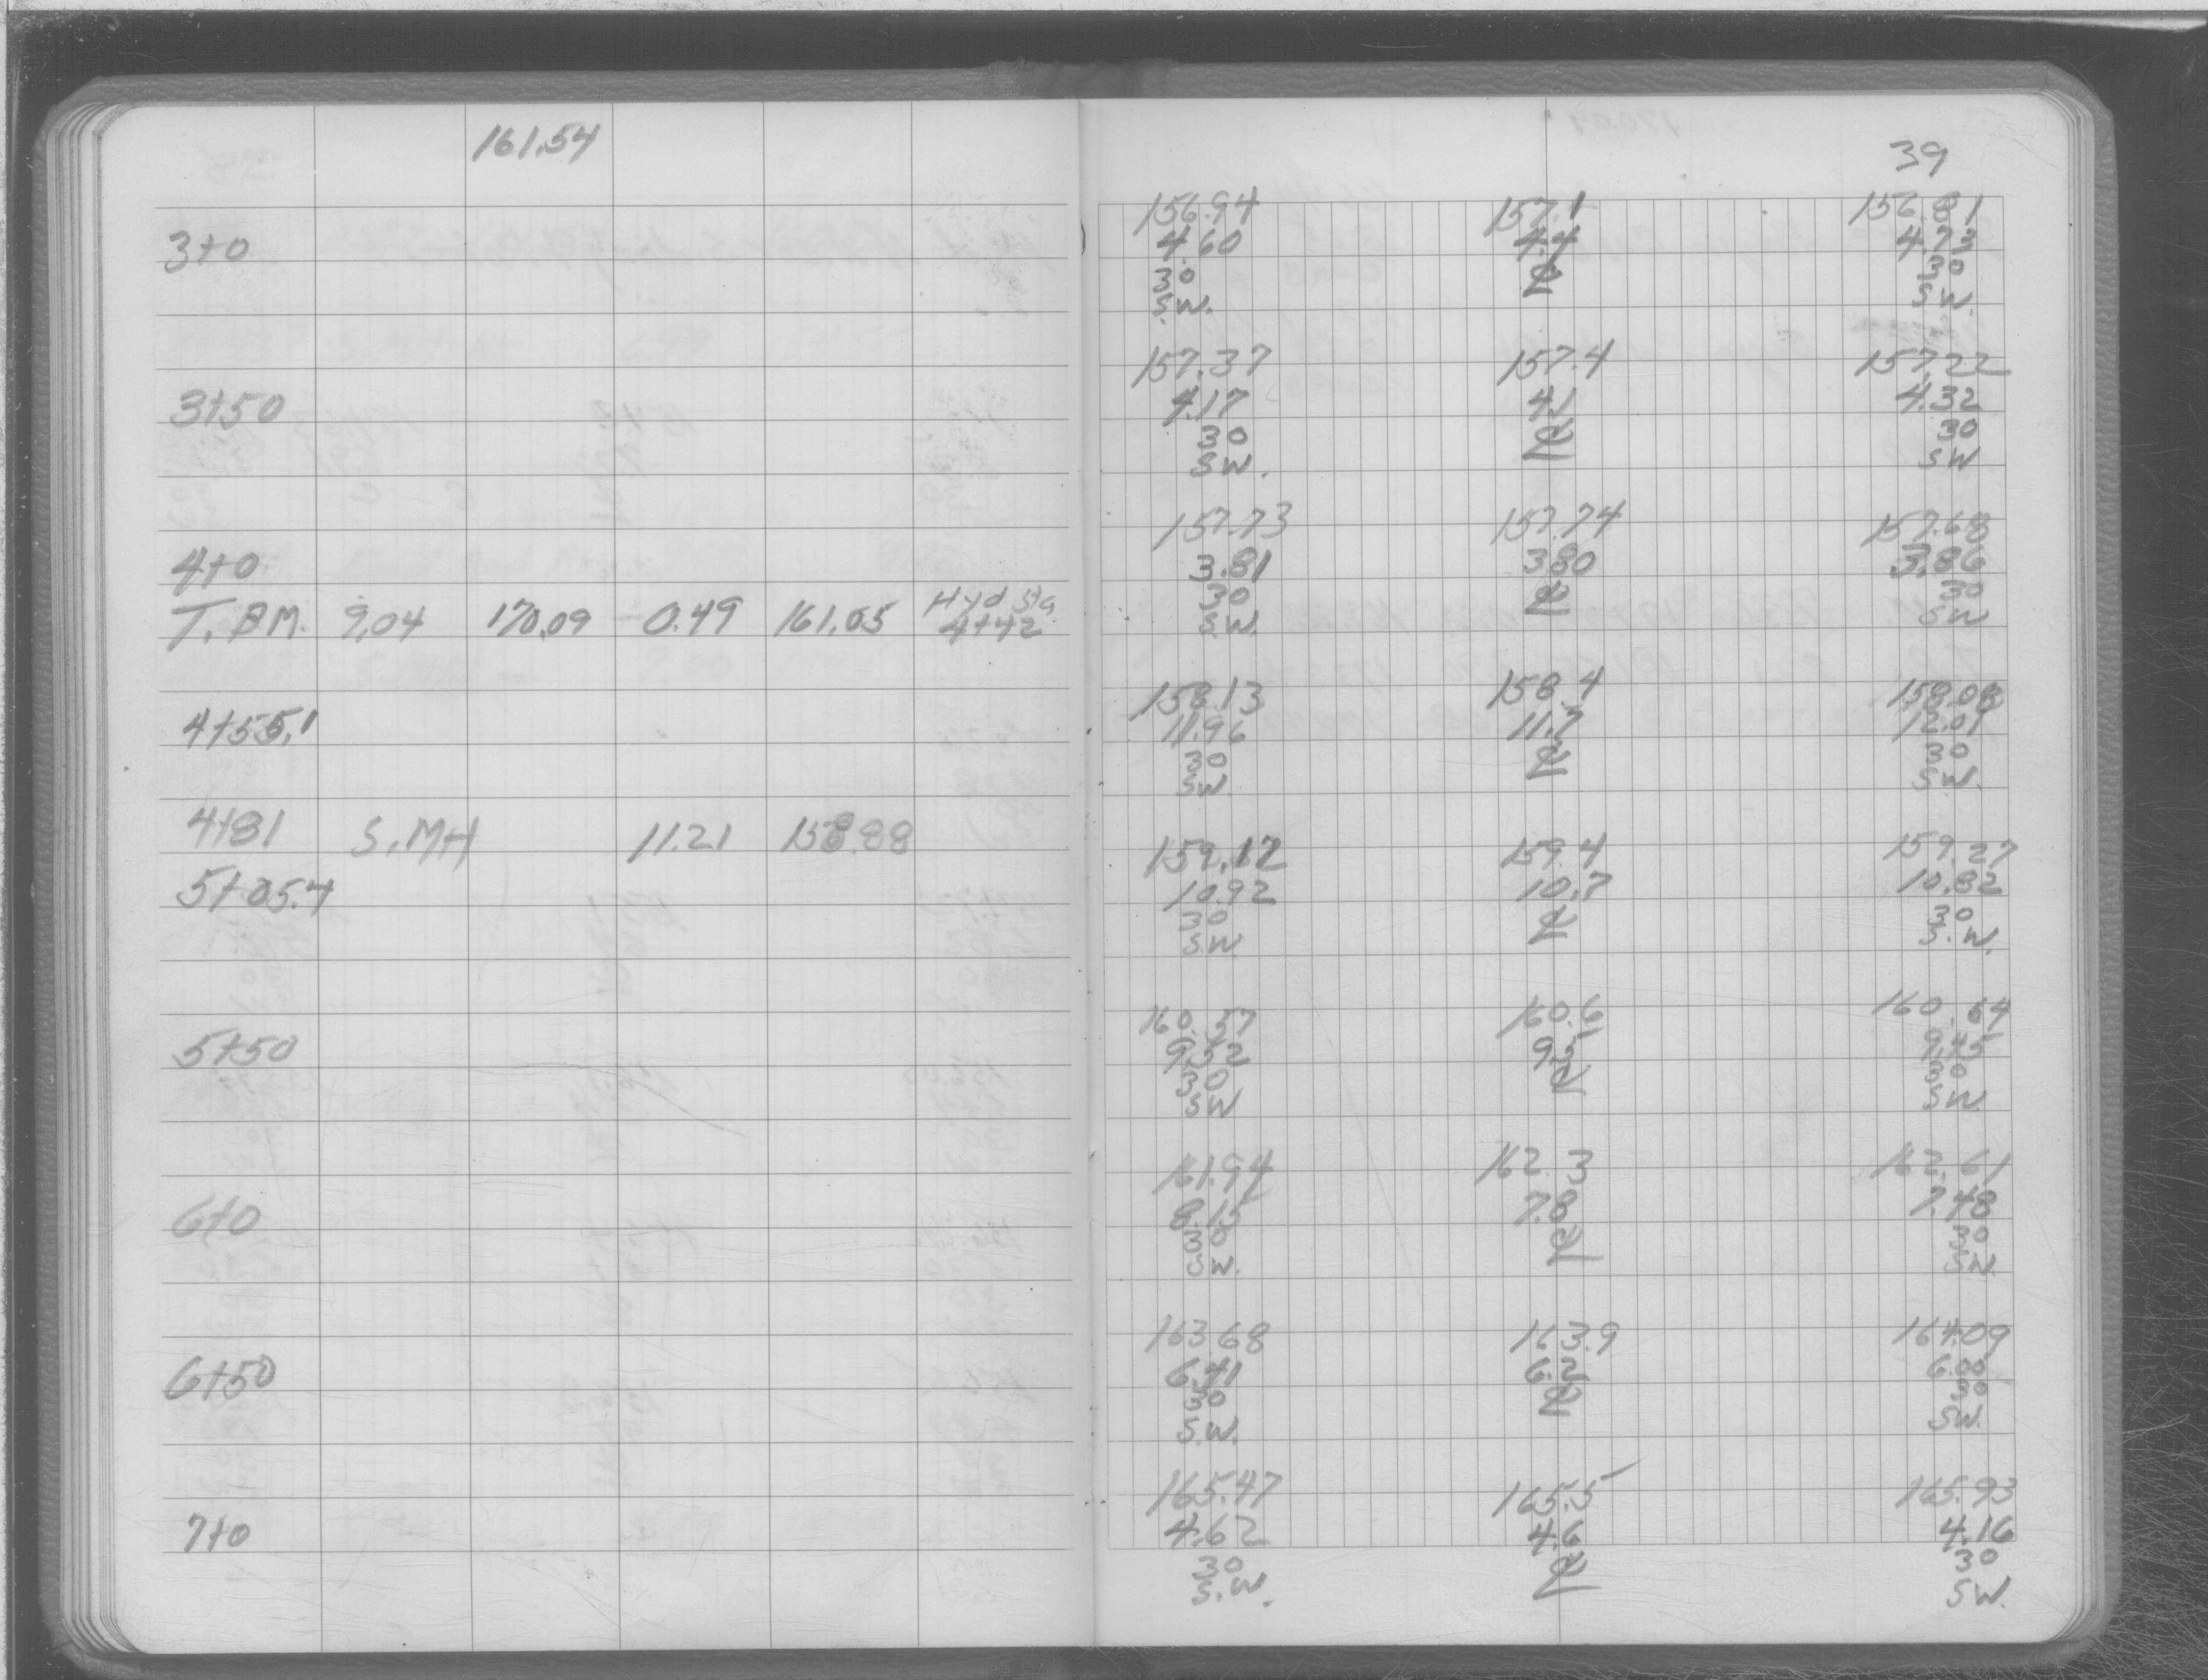 161.54
39
156.94 157.1 156.81
3+0 4.60 4.4 4.73
30 ℄ 30
S.W. S.W.
157.37 157.4 157.22
3+50 4.17 4.1 4.32
30 ℄ 30
S.W. SW
157.73 157.74 157.68
4+0 3.81 3.80 3.86
30 ℄ 30
T.B.M. 9.04 170.09 0.49 161.05 Hyd Sta. 4+42 S.W. SW
158.13 158.4 158.08
4+55.1 11.96 11.7 12.01
30 ℄ 30
SW S.W.
4+81 S.MH 11.21 158.88
159.17 159.4 159.27
5+05.4 10.92 10.7 10.82
30 ℄ 30
S.W. S.W.
160.57 160.6 160.64
5+50 9.52 9.5 9.45
30 ℄ 30
SW SW.
161.94 162.3 162.61
6+0 8.15 7.8 7.48
30 ℄ 30
S.W. SW.
163.68 163.9 164.09
6+50 6.41 6.2 6.00
30 ℄ 30
S.W. SW.
165.47 165.5 165.93
7+0 4.62 4.6 4.16
30 ℄ 30
S.W. SW.